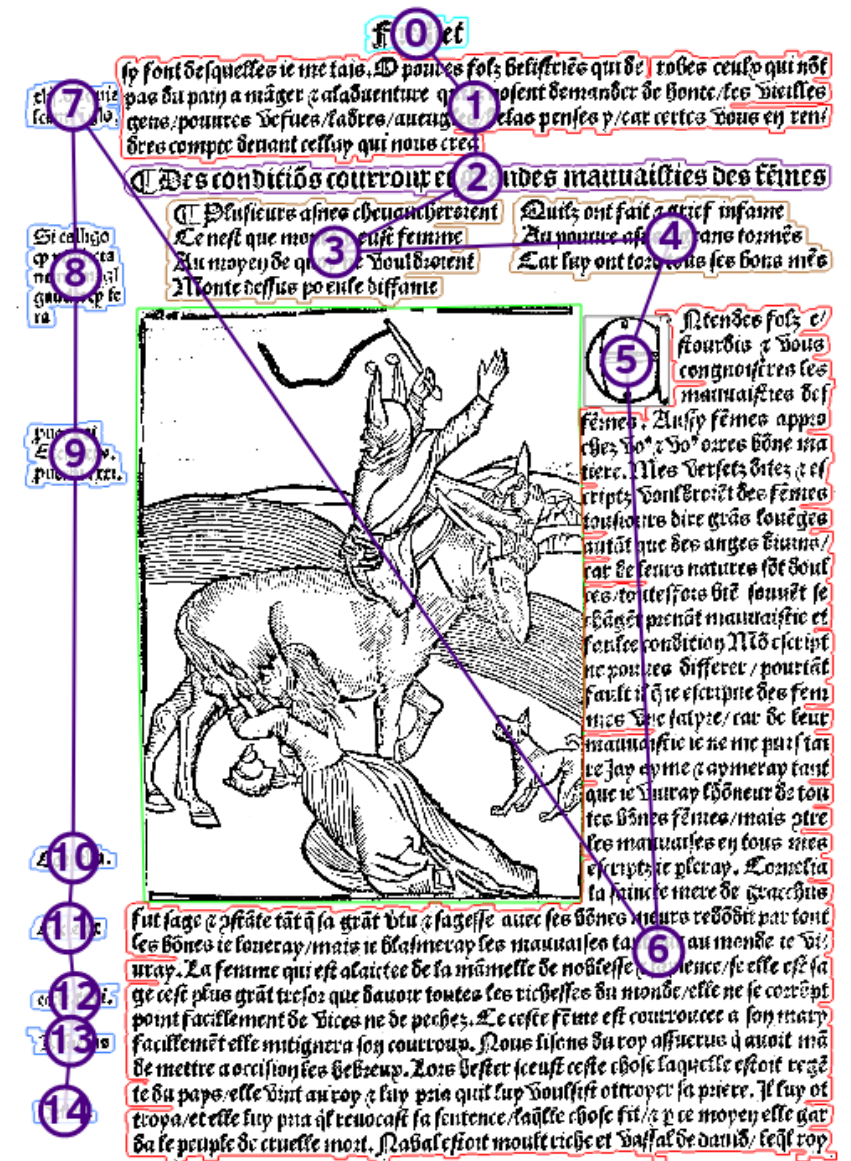 0
sy font desquelles ie me tais. O poures folz belistriēs qui de robes ceulx qui nōt
7
pas du pain a māger ⁊ a ladventure 1 nosent demander de honte/les vieilles
gens/pouures vefues/ladres/aueugles helas penses y/car certes vous en ren/
dres compte deuant celluy qui nous crea
¶ Des conditiōs courroux et 2 grandes mauuaisties des fēmes
¶ Plusieurs asnes cheuaucheroient
Ce nest que 3 femme
Au moyen de vouldroient
Monte dessus diffame
Quilz ont fait a grief infame
Au pouure 4 grans tormēs
Car luy ont tous ses bons mēs
8
9
10
11
12
13
14
5
Ntendes folz e/
stourdis ⁊ vous
congnoistres les
mauuaisties des
fēmes. Aussy fēmes appro
chez bōne ma
tiere. Mes versetz ditez ⁊ es
criptz vouldroiēt des fēmes
tousiours dire grās louēges
autāt que des anges diuins/
car de leurs natures sōt doul
ces/toutesfois biē souuēt se
chāgēt prenāt mauuaistie et
faulce condition Mō escript
ne pouues differer/pourtāt
fault il q̄ ie escripue des fem
mes vne satyre/car de leur
mauuaistie ie ne me puis tai
re Jay ayme ⁊ aymeray tant
que ie viuray lhōneur de tou
tes bōnes fēmes/mais
les mauuaises en tous mes
escriptz ie pleray. Cornelia
la saincte mere de gracchus
fut sage ⁊ tāt q̄ sa grāt vtu ⁊ sagesse auec ses bōnes meurs redōdit par tout
les bōnes ie loueray/mais ie blasmeray les mauuaises 6 au monde ie vi/
uray. La femme qui est alaictee de la māmelle de noblesse ⁊ /se elle est sa
ge cest plus grāt tresor que dauoir toutes les richesses du monde/elle ne se corrōpt
point facillement de vices ne de pechez. Se ceste fēme est courroucee a son mary
facillemēt elle mitignera son courroux. Nous lisons du roy assuerus q̄ auoit mā
de mettre a occision les hebreux. Lors hester sceust ceste chose laquelle estoit regē
te du pays/elle vint au roy ⁊ luy pria quil luy voulsist ottroyer sa priere. Il luy ot
troya/et elle luy pria q̄l reuocast sa sentence/laq̄lle chose fit/⁊ p ce moyen elle gar
da le peuple de cruelle mort. Nabal estoit moult riche et vassal de dauid/leq̄l roy